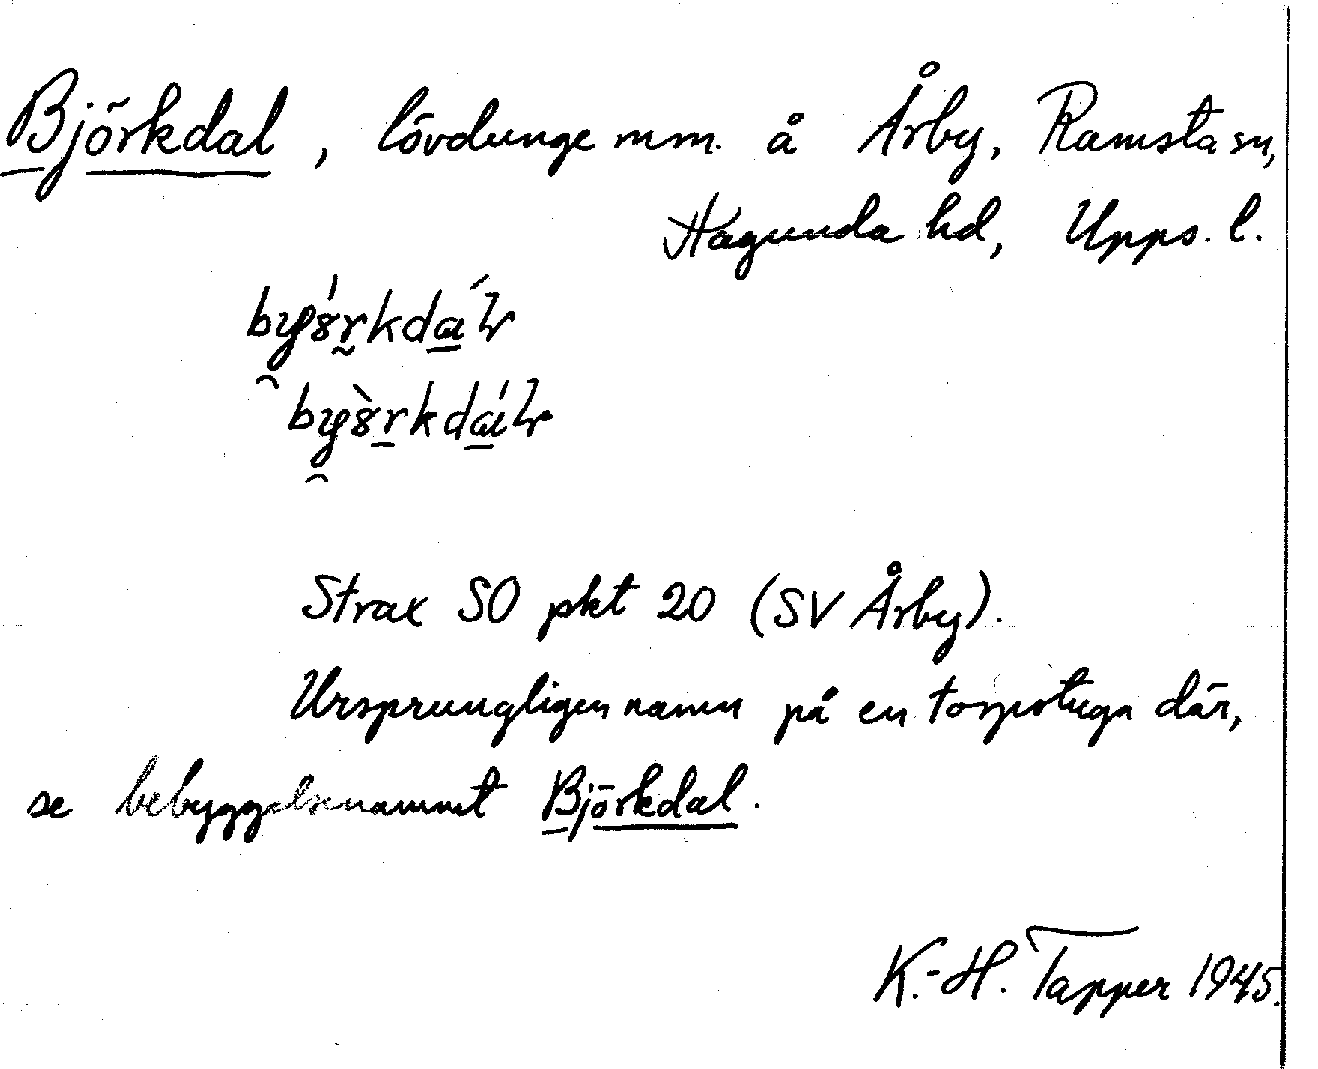 Björkdal, lövdunge m m. å Årby, Ramsta sn,
Hagunda hd, Upps. l.
Strax SO pkt 20 (SV Årby).
Ursprungligen namn på en torpstuga där,
se bebyggelsenamnet Björkdal.
K.-H. Tapper 1945.